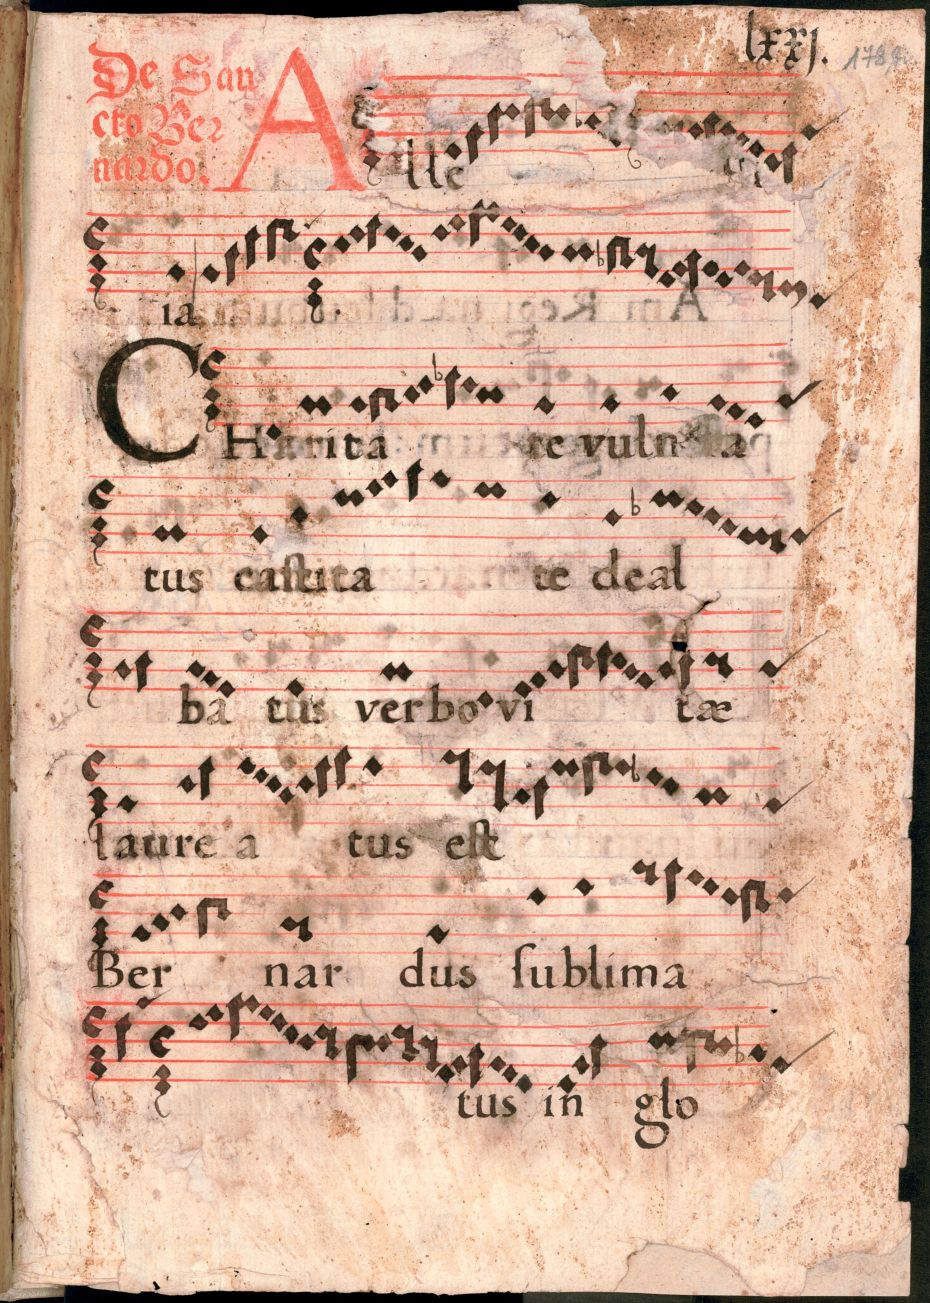 lxxj.
De San
cto Ber
nardo. A lle
ia
CHarita te vulne ra
tus castita te deal
ba tus verbo vi tæ
laure a tus est
Ber nar dus sublima
tus in glo